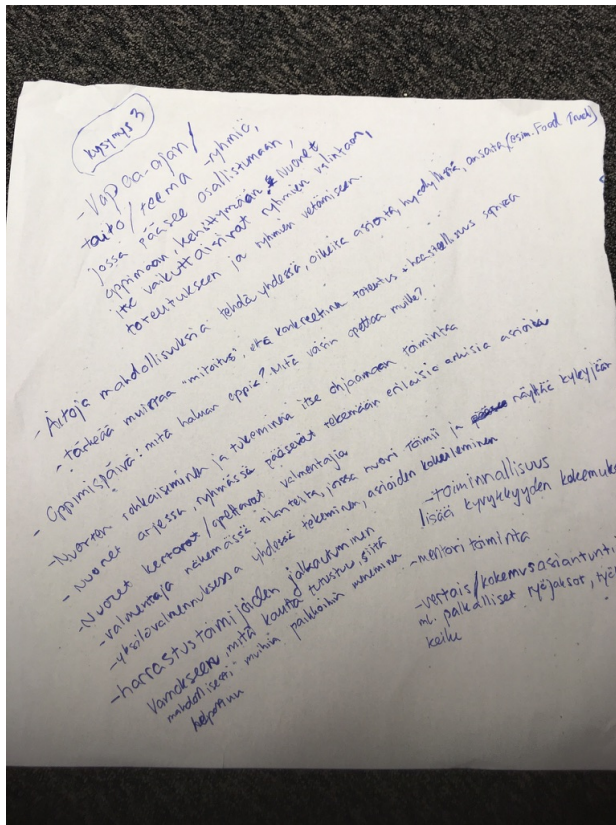 kysymys 3
- Vapaa-ajan/
taito/teema-ryhmiä,
jossa pääsee osallistumaan,
oppimaan, kehittymään. Nuoret
itse vaikuttaisivat ryhmien valintaan,
toteutukseen ja ryhmien vetämiseen.
- Aitoja mahdollisuuksia tehdä yhdessä, oikeita asioita, hyödyllistä, ansaita (esim. Food Truck)
- tärkeää muistaa "mitoitus", että konkreettinen toteutus + haasteellisuus sopiva
- Oppimispäivä: mitä haluan oppia? Mitä voisin opettaa muille?
- Nuorten rohkaiseminen ja tukeminen itse ohjaamaan toimintaa
- Nuoret arjessa, ryhmässä pääsevät tekemään erilaisia arkisia asioita
- Nuoret kertovat/opettavat valmentajia
- valmentaja näkemässä tilanteita, jossa nuori toimii ja näyttää kykyjään
- yksilövalmennuksessa yhdessä tekeminen, asioiden kokeileminen
- harrastustoimijoiden jalkautuminen
Vamokseen, mitä kautta tutustuu, siitä
mahdollisesti muihin paikkoihin meneminen
helpottuu
- toiminnallisuus
lisää kyvykkyyden kokemuks
- mentoritoiminta
- vertais/kokemusasiantunti
ml. palkalliset työjaksot, työ
keilu